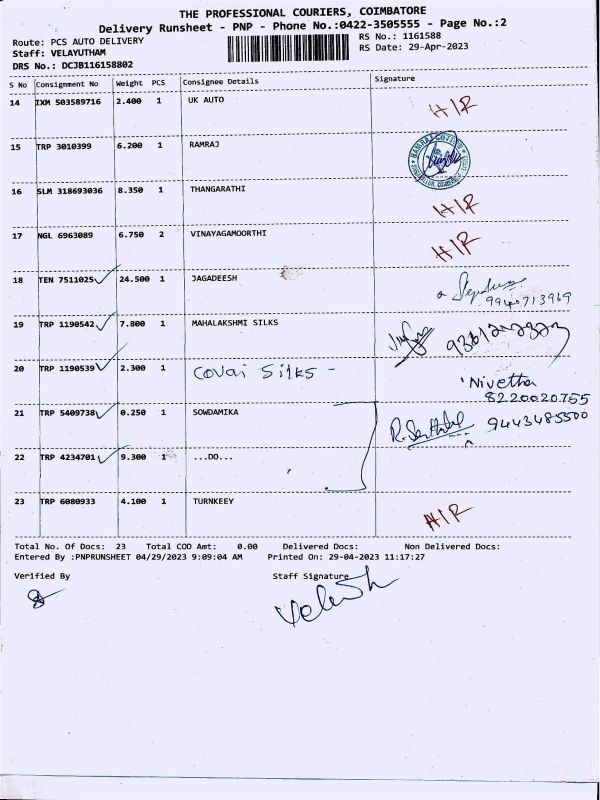 THE PROFESSIONAL COURIERS, COIMBATORE
Delivery Runsheet - PNP - Phone No.:0422-3505555 - Page No.:2
Route: PCS AUTO DELIVERY RS No.: 1161588
Staff: VELAYUTHAM RS Date: 29-Apr-2023
DRS No.: DCJB116158802
S No Consignment No Weight PCS Consignee Details Signature
14 IXM 503589716 2.400 1 UK AUTO H/R
15 TRP 3010399 6.200 1 RAMRAJ
16 SLM 318693036 8.350 1 THANGARATHI H/R
17 NGL 6963089 6.750 2 VINAYAGAMOORTHI H/R
18 TEN 7511025 24.500 1 JAGADEESH
19 TRP 1190542 7.800 1 MAHALAKSHMI SILKS
20 TRP 1190539 2.300 1 Covai Silks - Nivetha
8220020755
21 TRP 5409738 0.250 1 SOWDAMIKA 9443485500
22 TRP 4234701 9.300 1 ...DO...
23 TRP 6080933 4.100 1 TURNKEEY H/R
Total No. Of Docs: 23 Total COD Amt: 0.00 Delivered Docs: Non Delivered Docs:
Entered By :PNPRUNSHEET 04/29/2023 9:09:04 AM Printed On: 29-04-2023 11:17:27
Verified By Staff Signature